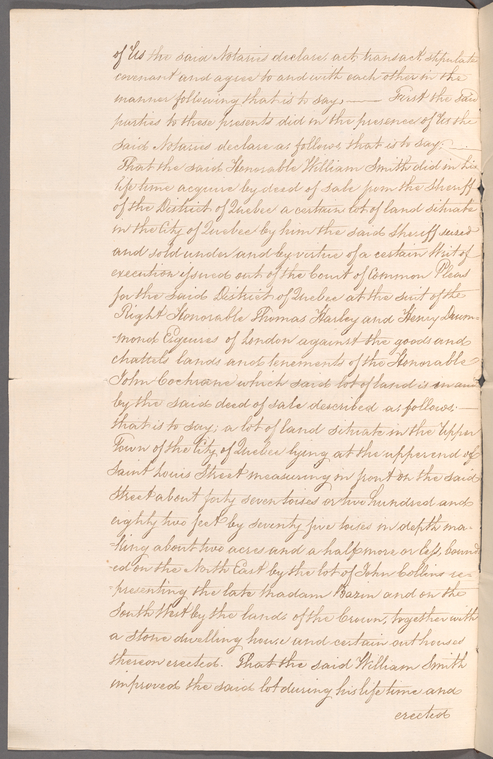 of Us the said Notaries declare act, transact stipulate
covenant and agree to and with each other in the
manner following that is to say, —— First the said
parties to these presents did in the presence of Us the
said Notaries declare as follows that is to say. —
That the said Honorable William Smith did in his
life time acquire by deed of sale from the Sheriff
of the District of Quebec a certain lot of land situate
in the City of Quebec by him the said Sheriff seized
and sold under and by virtue of a certain Writ of
execution issued out of the Court of Common Pleas
for the said District of Quebec at the suit of the
Right Honorable Thomas Harley and Henry Drum-
mond Esquires of London against the goods and
chattels lands and tenements of the Honorable
John Cochrane which said lot of land is in and
by the said deed of sale described as follows. —
that is to say; a lot of land situate in the Upper
Town of the City of Quebec lying at the upper end of
Saint Louis Street measuring in front on the said
Street about forty seven toises or two hundred and
eighty two feet by seventy five toises in depth ma-
king about two acres and a half more or less, bound
ed on the North East by the lot of John Collins re-
presenting the late Madam Bazin and on the
South West by the lands of the Crown, together with
a stone dwelling house and certain out houses
thereon erected. That the said William Smith
improved the said lot during his life time and
erected